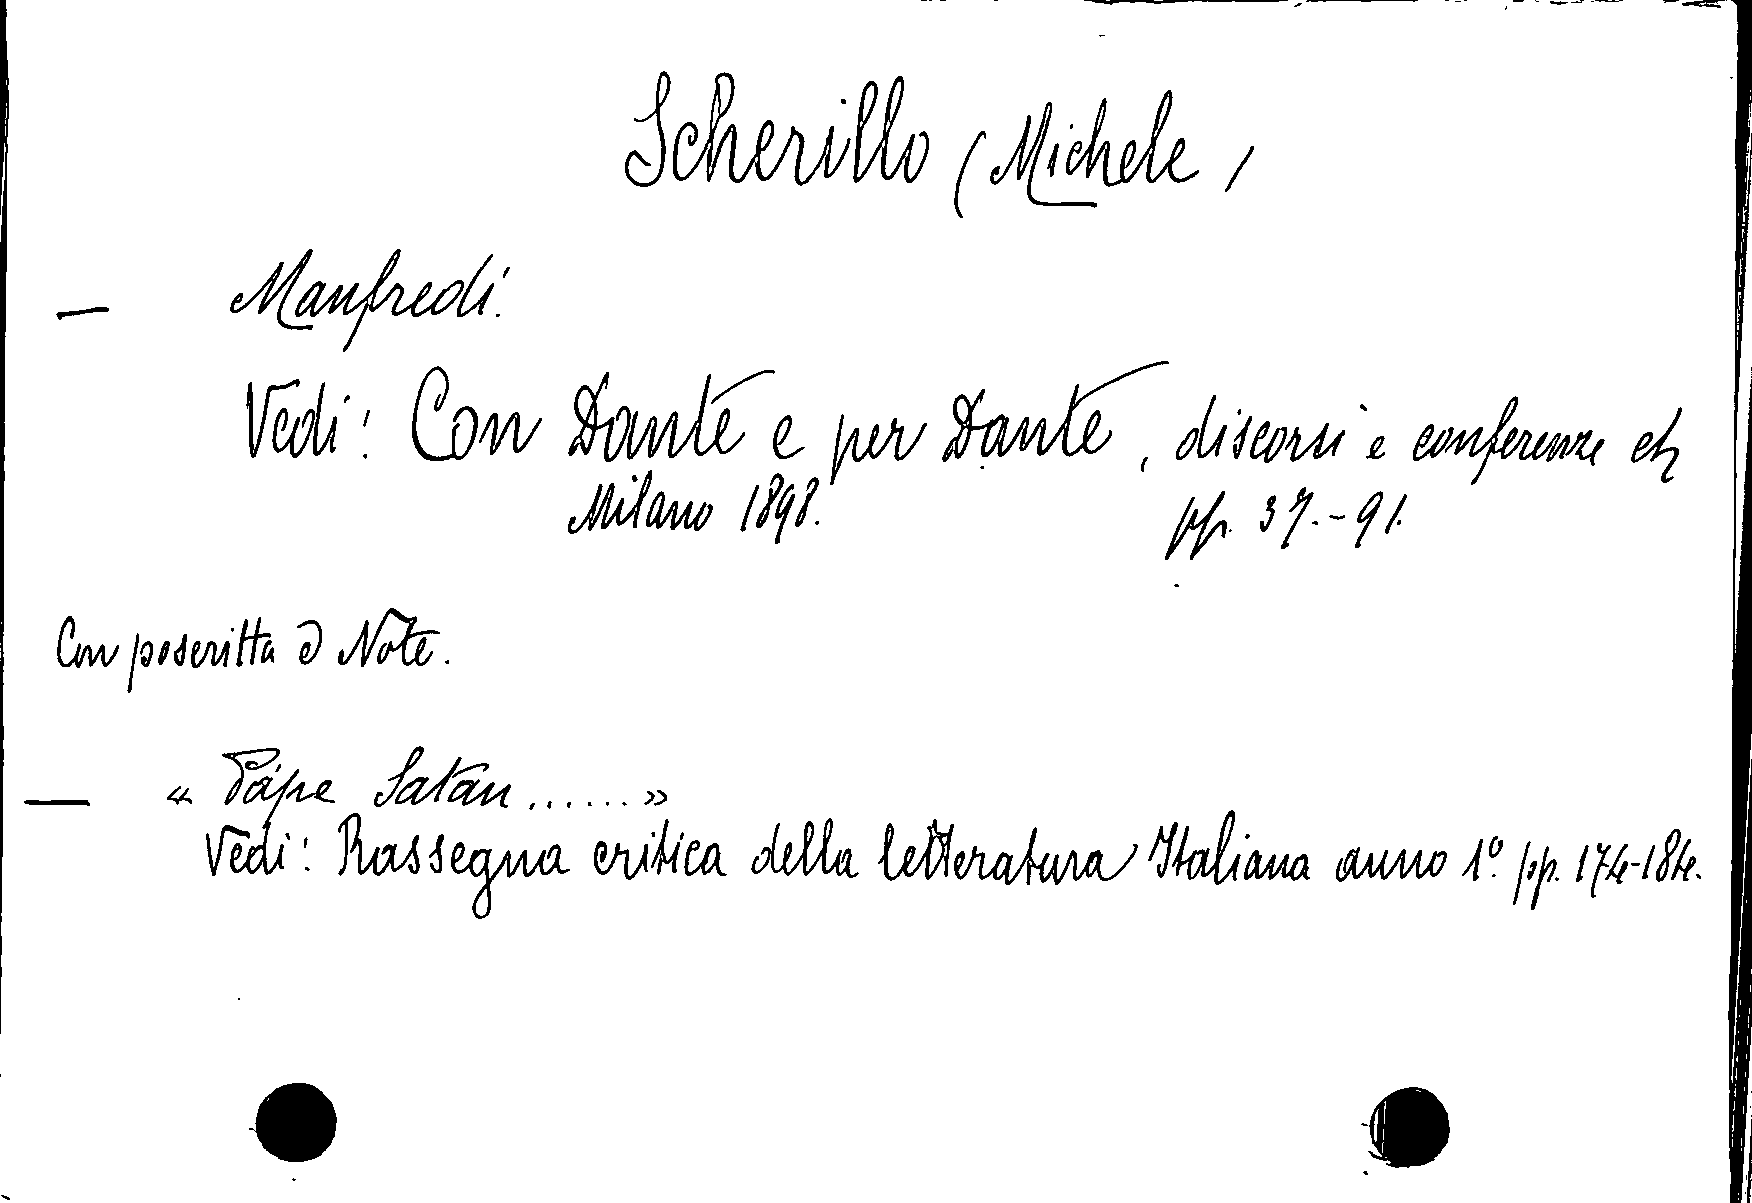 Scherillo (Michele)
— Manfredi.
Vedi: Con Dante e per Dante, discorsi e conferenze etc
Milano 1898. pp. 37.-91.
Con poscritta e Note.
— « Pápe Satan ...... »
Vedi: Rassegna critica della letteratura Italiana anno 1º. pp. 174-184.